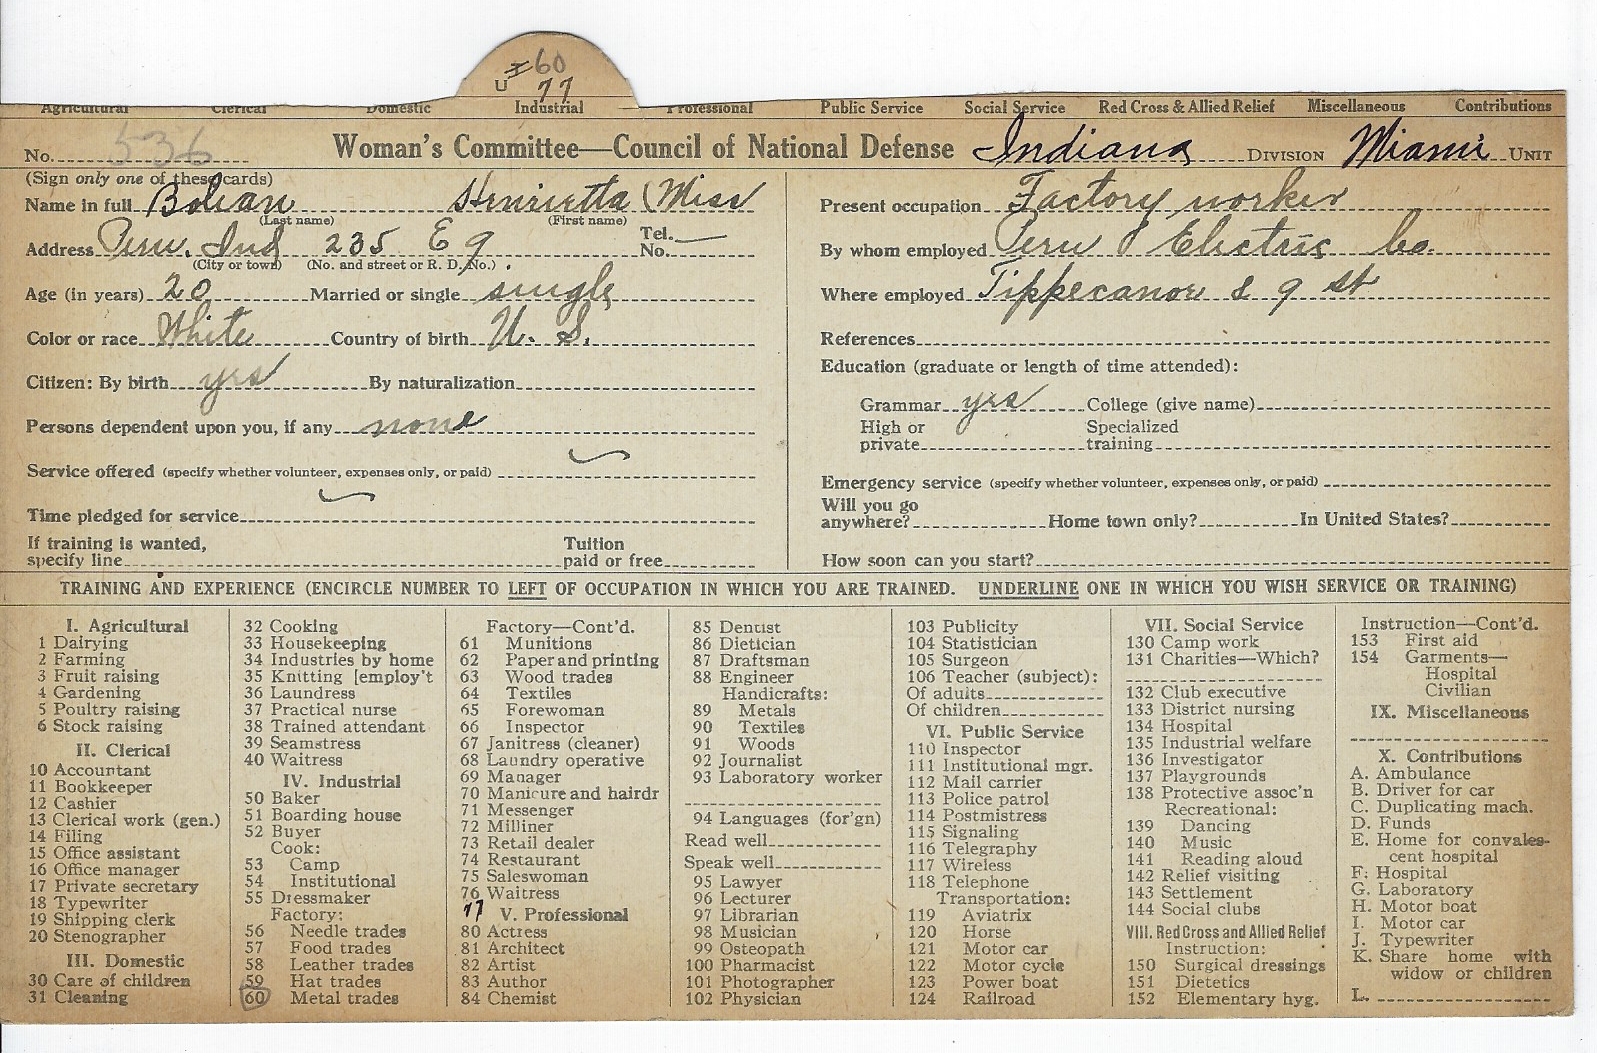 I 60
U 77
Agricultural Clerical Domestic Industrial Professional Public Service Social Service Red Cross & Allied Relief Miscellaneous Contributions
No. 536 Woman's Committee—Council of National Defense Indiana DIVISION Miami UNIT
(Sign only one of these cards)
Name in full Henrietta (Miss
(Last name) (First name)
Address Peru. Ind 235 E 9. Tel. No. —
(City or town) (No. and street or R. D. No.)
Age (in years) 20 Married or single single
Color or race White Country of birth U. S.
Citizen: By birth yes By naturalization
Persons dependent upon you, if any none
Service offered (specify whether volunteer, expenses only, or paid)
Time pledged for service
If training is wanted, Tuition
specify line paid or free
Present occupation Factory worker
By whom employed Peru Electric Co.
Where employed Tippecanoe & 9 st
References
Education (graduate or length of time attended):
Grammar yes College (give name)
High or Specialized
private training
Emergency service (specify whether volunteer, expenses only, or paid)
Will you go
anywhere? Home town only? In United States?
How soon can you start?
TRAINING AND EXPERIENCE (ENCIRCLE NUMBER TO LEFT OF OCCUPATION IN WHICH YOU ARE TRAINED. UNDERLINE ONE IN WHICH YOU WISH SERVICE OR TRAINING)
I. Agricultural
1 Dairying
2 Farming
3 Fruit raising
4 Gardening
5 Poultry raising
6 Stock raising
II. Clerical
10 Accountant
11 Bookkeeper
12 Cashier
13 Clerical work (gen.)
14 Filing
15 Office assistant
16 Office manager
17 Private secretary
18 Typewriter
19 Shipping clerk
20 Stenographer
III. Domestic
30 Care of children
31 Cleaning
32 Cooking
33 Housekeeping
34 Industries by home
35 Knitting [employ't
36 Laundress
37 Practical nurse
38 Trained attendant
39 Seamstress
40 Waitress
IV. Industrial
50 Baker
51 Boarding house
52 Buyer
Cook:
53 Camp
54 Institutional
55 Dressmaker
Factory:
56 Needle trades
57 Food trades
58 Leather trades
59 Hat trades
60 Metal trades
Factory—Cont'd.
61 Munitions
62 Paper and printing
63 Wood trades
64 Textiles
65 Forewoman
66 Inspector
67 Janitress (cleaner)
68 Laundry operative
69 Manager
70 Manicure and hairdr
71 Messenger
72 Milliner
73 Retail dealer
74 Restaurant
75 Saleswoman
76 Waitress
77 V. Professional
80 Actress
81 Architect
82 Artist
83 Author
84 Chemist
85 Dentist
86 Dietician
87 Draftsman
88 Engineer
Handicrafts:
89 Metals
90 Textiles
91 Woods
92 Journalist
93 Laboratory worker
94 Languages (for'gn)
Read well
Speak well
95 Lawyer
96 Lecturer
97 Librarian
98 Musician
99 Osteopath
100 Pharmacist
101 Photographer
102 Physician
103 Publicity
104 Statistician
105 Surgeon
106 Teacher (subject):
Of adults
Of children
VI. Public Service
110 Inspector
111 Institutional mgr.
112 Mail carrier
113 Police patrol
114 Postmistress
115 Signaling
116 Telegraphy
117 Wireless
118 Telephone
Transportation:
119 Aviatrix
120 Horse
121 Motor car
122 Motor cycle
123 Power boat
124 Railroad
VII. Social Service
130 Camp work
131 Charities—Which?
132 Club executive
133 District nursing
134 Hospital
135 Industrial welfare
136 Investigator
137 Playgrounds
138 Protective assoc'n
Recreational:
139 Dancing
140 Music
141 Reading aloud
142 Relief visiting
143 Settlement
144 Social clubs
VIII. Red Cross and Allied Relief
Instruction:
150 Surgical dressings
151 Dietetics
152 Elementary hyg.
Instruction—Cont'd.
153 First aid
154 Garments—
Hospital
Civilian
IX. Miscellaneous
X. Contributions
A. Ambulance
B. Driver for car
C. Duplicating mach.
D. Funds
E. Home for convales-
cent hospital
F. Hospital
G. Laboratory
H. Motor boat
I. Motor car
J. Typewriter
K. Share home with
widow or children
L.